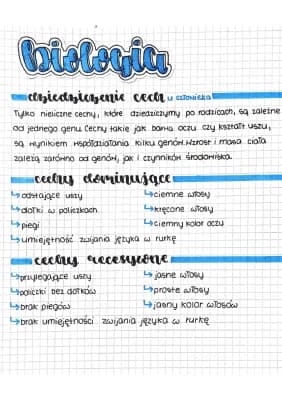 biologia
dziedziczenie cech u człowieka
Tylko nieliczne cechy, które dziedziczymy po rodzicach, są zależne
od jednego genu. Cechy takie jak barwa oczu czy kształt uszu,
są wynikiem współdziałania kilku genów. Wzrost i masa ciała
zależą zarówno od genów, jak i czynników środowiska.
cechy dominujące
↳odstające uszy ↳ciemne włosy
↳dołki w policzkach ↳kręcone włosy
↳piegi ↳ciemny kolor oczu
↳umiejętność zwijania języka w rurkę
cechy recesywne
↳przylegające uszy ↳jasne włosy
↳policzki bez dołków ↳proste włosy
↳brak piegów ↳jasny kolor włosów
↳brak umiejętności zwijania języka w rurkę